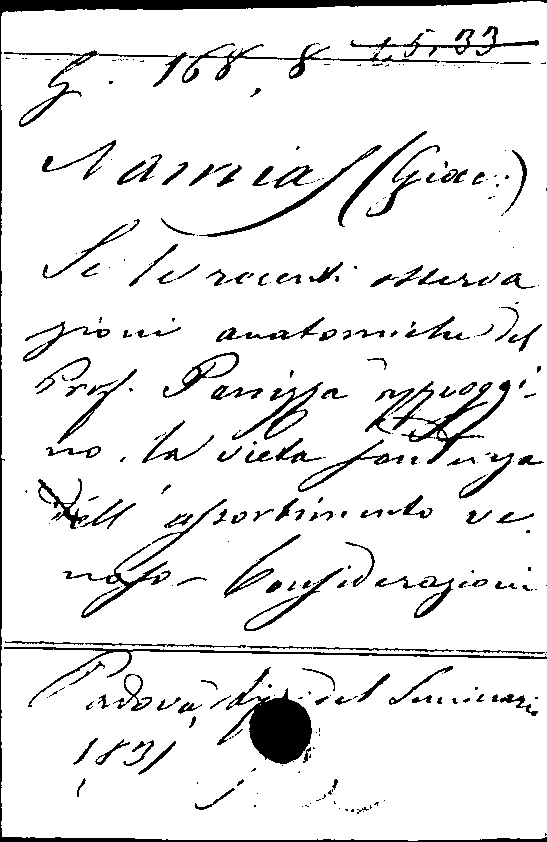 G. 168, 8 L. 5. 33
Namias (Giac:)
Se le recenti osserva
zioni anatomiche del
Prof. Panizza appoggi-
no la vieta
dell'assorbimento ve
noso - Considerazioni
Padova, tip. del Seminario
1831